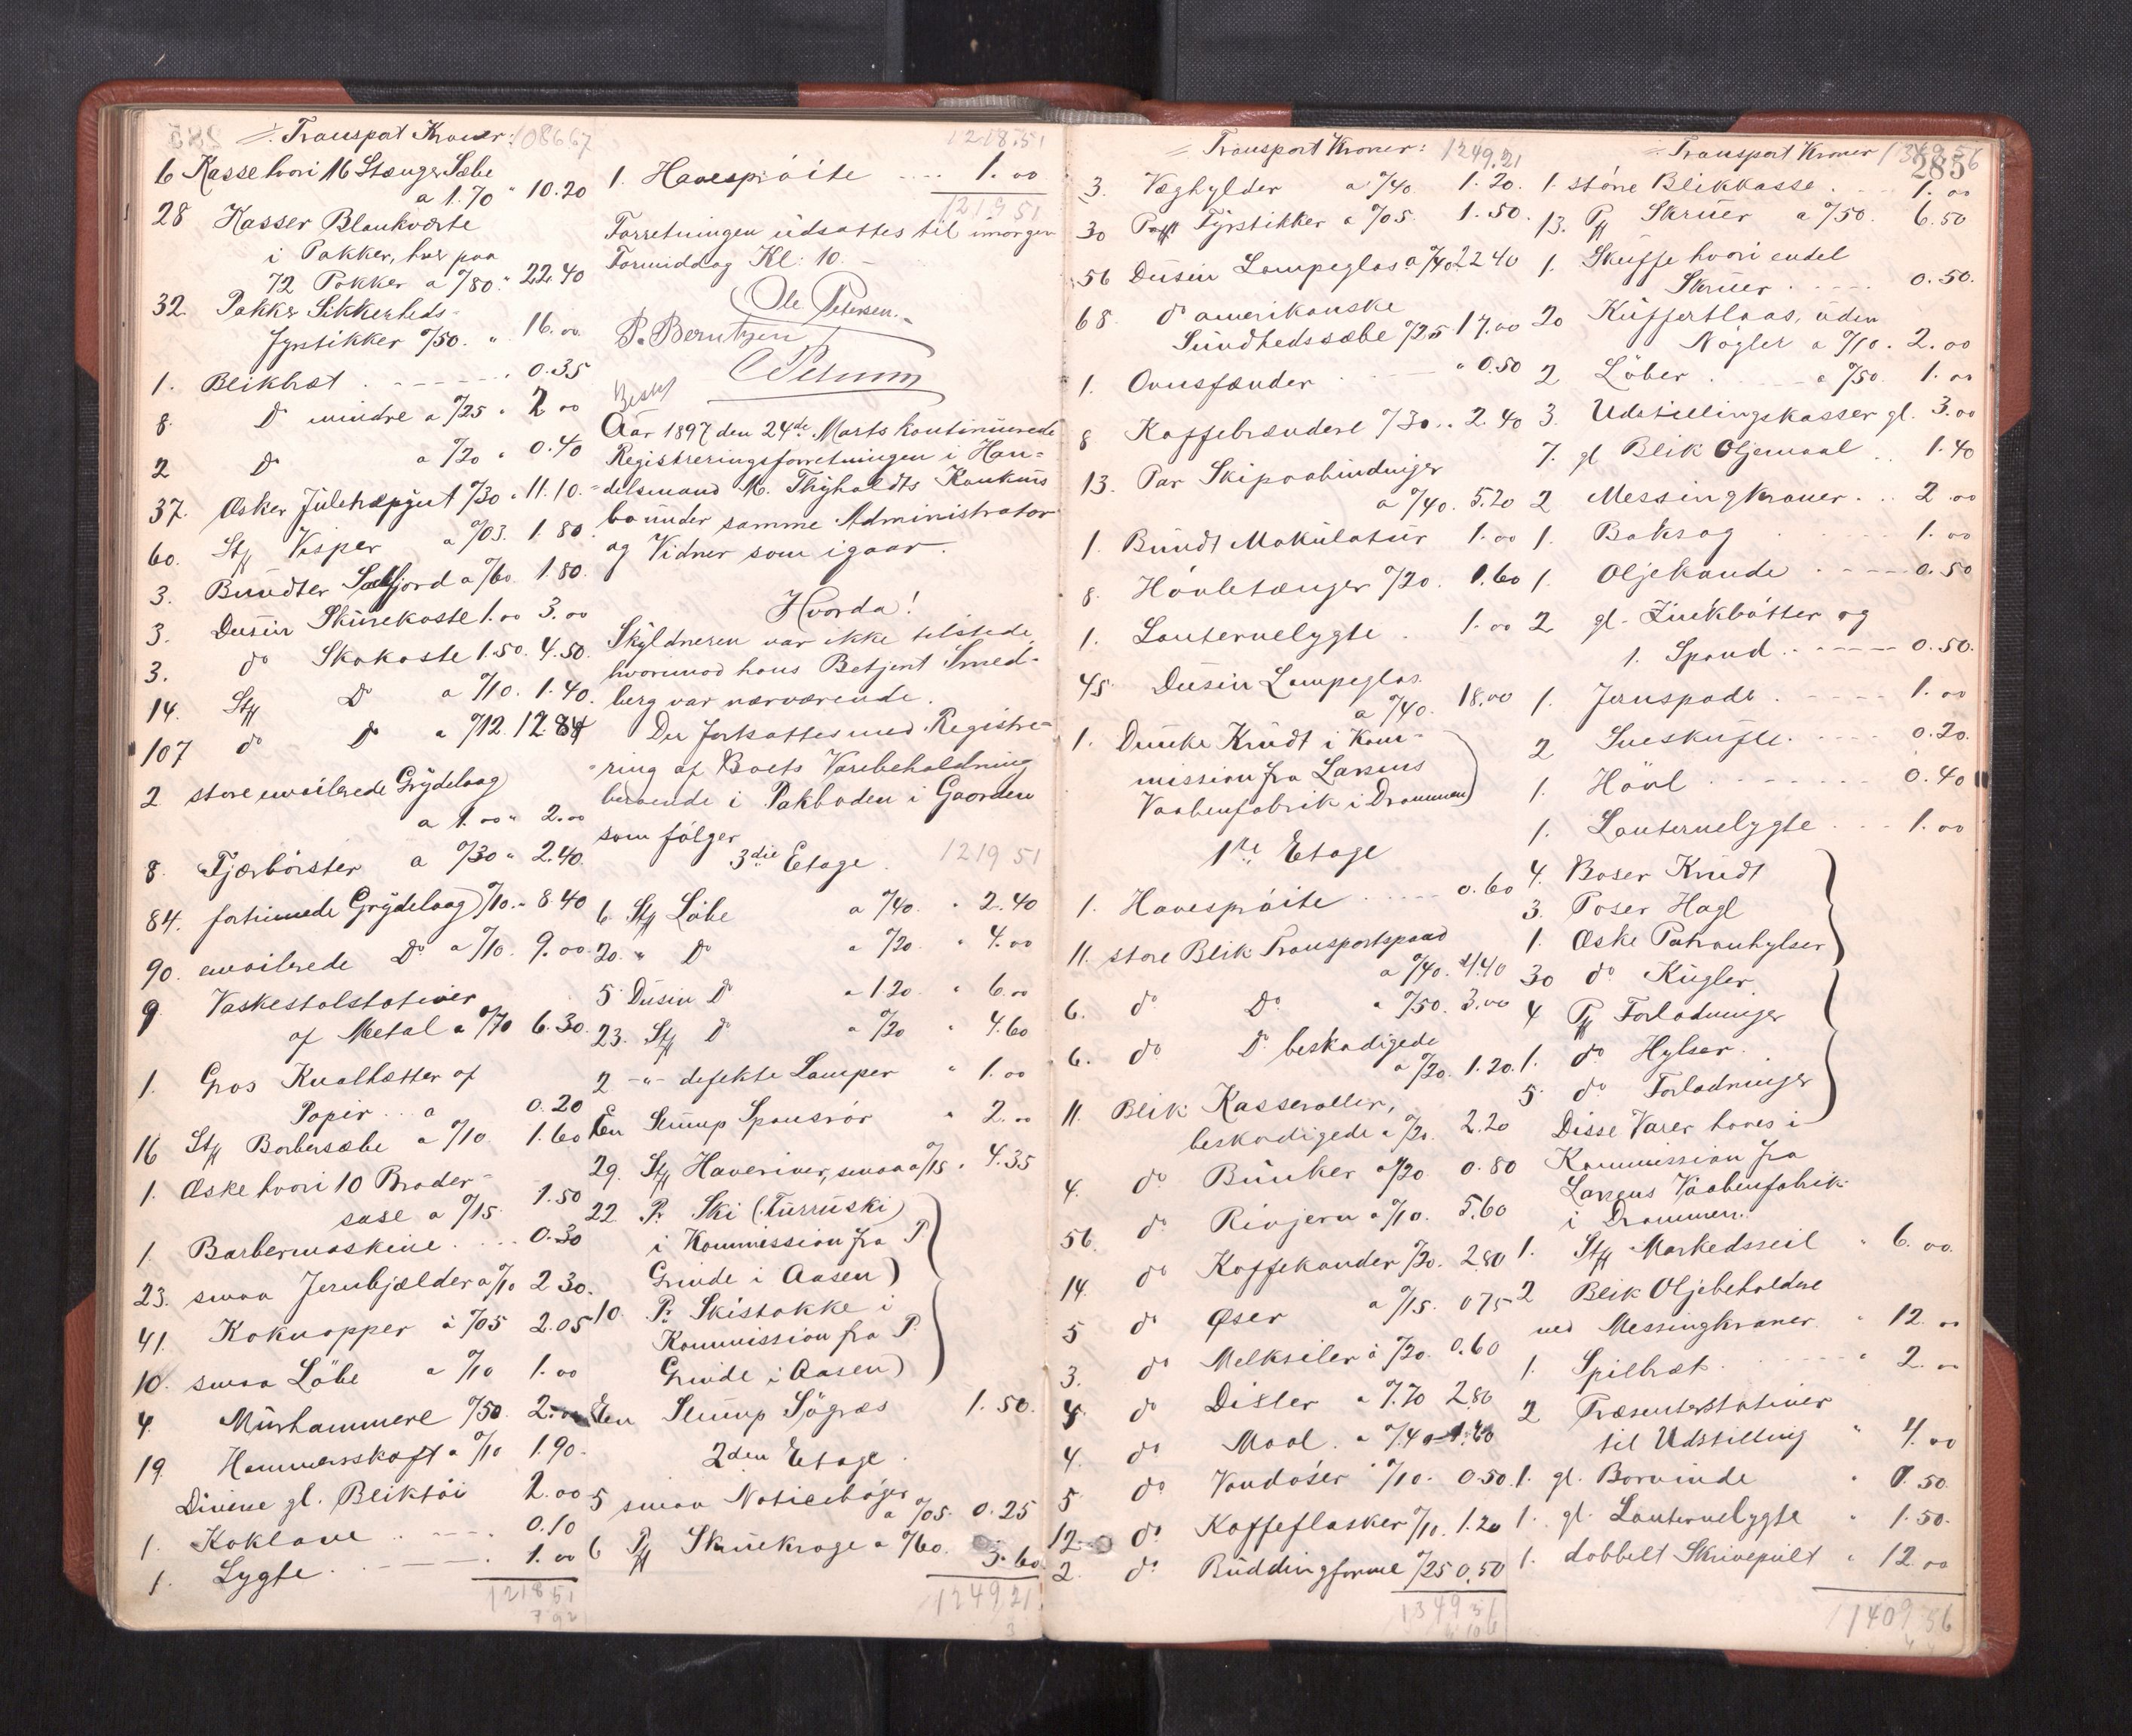 Transport Kroner: 1086.67
6 Kasse hvori 16 Stænger Sæbe
a 1.70 " 10.20
28 Kasser Blanksværte
i Pakker, hver paa
72 Pakker a %80 " 22.40
32. Pakker Sikkerheds-
fyrstikker %50. " 16.00
1. Blikbræt . - - - - - 0.35
8. Do mindre a %25 " 2 00
2 Do a %20 " 0.40
37. Æsker Juletræpynt %30 " 11.10.
60. Stk Visper a %03. 1.80.
3. Bundter Seilgjord a %60. 1.80.
3. Dusin Skurekoste 1.00 3.00
3. do Skokoste 1.50. 4.50.
14. Stk Do a %10. 1.40.
107 do Do a %12. 12.84
2 store emailerede Grydelaag
a 1.00 " 2.00
8. Tjærbørster a %30 " 2.40.
84. fortinnede Grydelaag %10. " 8.40
90. emailerede Do a %10. 9.00.
9 Vaskestolstativer
af Metal a %70 6.30.
1. Gros Knalhætter af
Papir .. a 0.20
16 Stk Barbersæbe a %10. 1.60
1. Æske hvori 10 Broder-
sase a %15 1.50
1. Barbermaskine . . . . 0.30
23. smaa Jernbjælder a %10 2 30.
41. Koknapper a %05 2.05
10. smaa Løbe a %10 1.00
4. Murhammere %50. 2.00
19. Hammerskaft a %10 1.90.
Diverse gl. Bliktøi 2.00
1. Koklave . . - - - . 0.10
1. Lygte . . - - - . 1.00
1218 51
1218.51
1. Havesprøite .... 1.00
1219 51
Forretningen udsattes til imorgen
Formiddag Kl: 10. -
Ole Petersen.
P. Berntzen
Aar 1897 den 24de Marts kontinuerede
Registreringsforretningen i Han=
delsmand M. Thyholdts Konkurs
bo under samme Administrator
og Vidner som igaar.
Hvorda!
Skyldneren var ikke tilstede,
hvorimod hans Betjent Smed-
berg var nærværende.
Der fortsattes med Registre=
ring af Boets Varebeholdning
beroende i Pakboden i Gaarden
som følger
3die Etage. 1219 51
6 Stk Løbe a %40. " 2.40
20. " Do a %20. " 4.00
5 Dusin Do a 1.20 " 6.00
23. Stk Do a %20 " 4.60
2 -"- defekte Lamper " 1.00
En Stump Spansrør " 2.00
29. Stk Haveriver, smaa a %15 " 4.35
22 Pr Ski (Furruski)
i Kommission fra P
Grinde i Aasen)
10. Pr Skistokke i
Kommission fra P.
Grinde i Aasen)
En Stump Søgræs 1.50.
2den Etage.
5 smaa Noticebøger
a %05. 0.25
6 Pk Skruekroge a %60. 3.60
1249.21.
Transport Kroner: 1249.21
3. Væghylder a %40. 1.20.
30 Pak Fyrstikker a %05. 1.50.
56 Dusin Lampeglas a %40 22 40
68. do amerikanske
Sundhedssæbe %25 17.00
1. Ovnsfænder " 0.50
8 Kaffebrændere %30.. 2.40
13. Par Skipaabindinger
a %40. 5.20
1. Bundt Makulatur 1.00
8. Hovletænger %20. 1.60
1. Lanternelygte . 1.00
45. Dusin Lampeglas
a %40. 18.00
1. Dunke Krudt i Kom-
mission fra Larsens
Vaabenfabrik i Drammen)
1ste Etage
1. Havesprøite . . . . . 0.60
11. store Blik Transportspand
a %40. 4.40
6. do Do a %50. 3.00
6. do Do beskadigede
a %20. 1.20.
11. Blik Kasseroller,
beskadigede a %20. 2.20
4. do Bunker a %20 0.80
56. do Rivjern a %10. 5.60
14. do Kaffekander %20. 2.80
5 do Øser a %15. 0 75
3. do Melksiler a %20. 0.60
4 do Disler a %70 2.80
4. do Maal. a %40 1.60
5 do Vandøser %10. 0.50
12 do Kaffeflasker %10. 1.20
2. do Buddingforme %25 0.50
1349 56
Transport Kroner 1349.56
285
1. større Blikkasse . . . 1.00
13. Pk Skruer a %50. 6.50
1. Skuffe hvori endel
Skruer . . . . . 0.50.
20 Kuffertlaas, uden
Nøgler a %10. 2.00
2 Løber . . . a %50. 1.00
3. Udstillingskasser gl. 3.00
7. gl Blik Oljemaal .. 1.40
2 Messingkraner. .. 2.00
1. Baksag . . . . 1.00
1. Oljekande . . . . 0.50
2 gl. Zinkbøtter og
1. Spand .. - - - 0.50.
1. Jernspade . - - - 1.00
2 Sneskufle. . . . . 0.20.
1. Høvl . . . . . 0.40
1. Lanternelygte . . . 1.00
4. Baser Krudt
3. Poser Hagl
1. Æske Patronhylser
30 do Kugler.
4 Pk Forladninger
1. do Hylser.
5. do Forladninger
Disse Varer haves i
Kommission fra
Larsens Vaabenfabrik
i Drammen.
1. Stk Markedsseil " 6.00.
2 Blik Oljebeholdere
med Messingkraner. " 12.00
1. Spilbræt. . . . " 2.00
2 Præsenterstativer
til Udstilling " 4.00
1. gl. Borvinde " 1.50.
1. gl. Lanternelygte " 1.50.
1. dobbelt Skrivepult " 12.00
1409 56